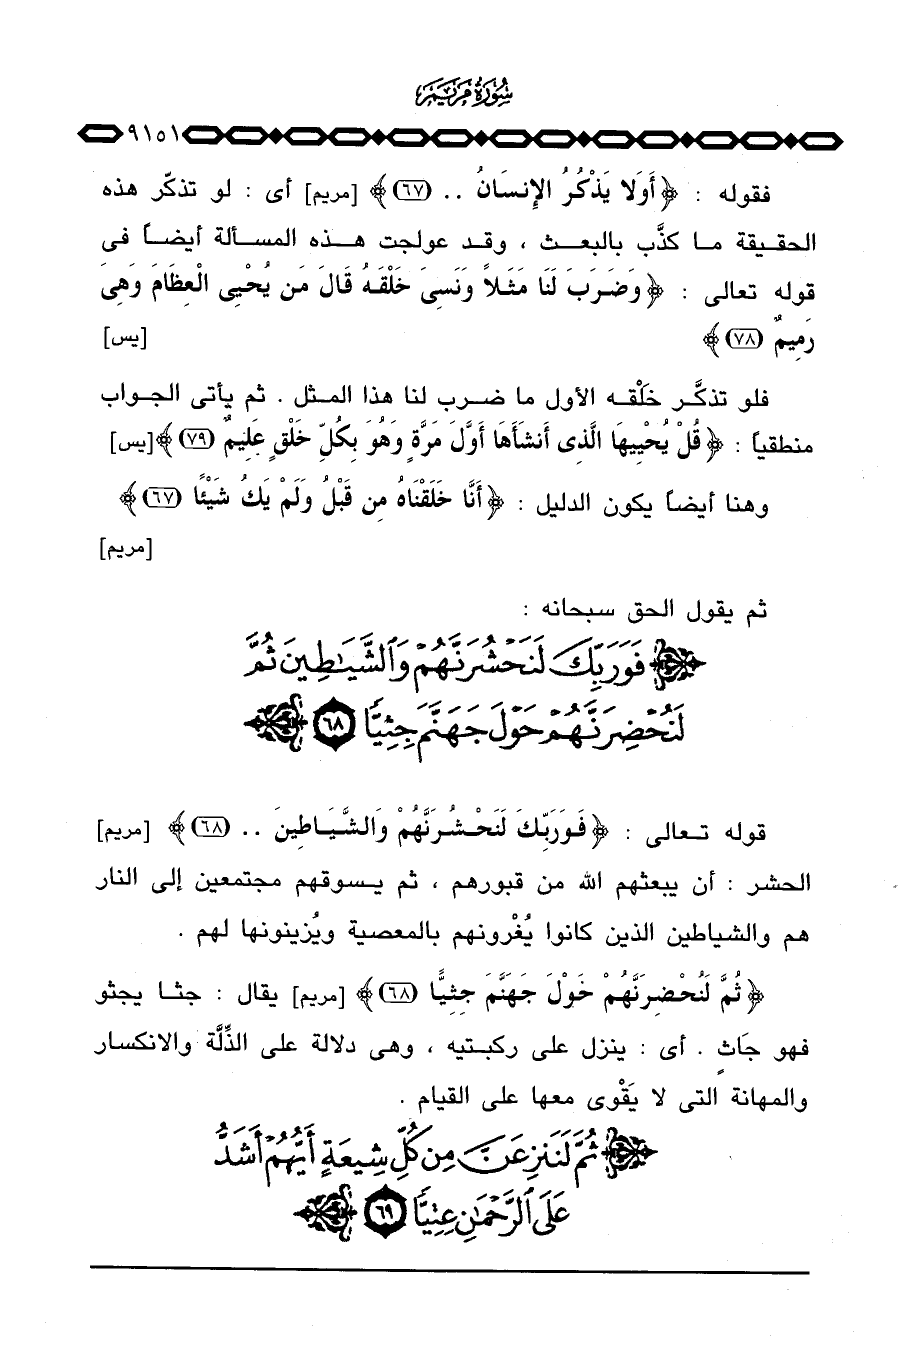 سُورَةُ مَرْيَمَ
٩١٥١
فقوله : ﴿ أَوَلَا يَذْكُرُ الإِنسَانُ .. (٦٧) ﴾ [مريم] أى : لو تذكّر هذه
الحقيقة ما كذَّب بالبعث ، وقد عولجت هذه المسألة أيضاً فى
قوله تعالى : ﴿ وَضَرَبَ لَنَا مَثَلاً وَنَسِىَ خَلْقَهُ قَالَ مَن يُحْيِى الْعِظَامَ وَهِىَ
رَمِيمٌ (٧٨) ﴾ [يس]
فلو تذكَّر خلْقه الأول ما ضرب لنا هذا المثل . ثم يأتى الجواب
منطقياً : ﴿ قُلْ يُحْيِيهَا الَّذِى أَنشَأَهَا أَوَّلَ مَرَّةٍ وَهُوَ بِكُلِّ خَلْقٍ عَلِيمٌ (٧٩) ﴾ [يس]
وهنا أيضاً يكون الدليل : ﴿ أَنَّا خَلَقْنَاهُ مِن قَبْلُ وَلَمْ يَكُ شَيْئًا (٦٧) ﴾
[مريم]
ثم يقول الحق سبحانه :
﴿ فَوَرَبِّكَ لَنَحْشُرَنَّهُمْ وَٱلشَّيَٰطِينَ ثُمَّ
لَنُحْضِرَنَّهُمْ حَوْلَ جَهَنَّمَ جِثِيًّا ٦٨ ﴾
قوله تعالى : ﴿ فَوَرَبِّكَ لَنَحْشُرَنَّهُمْ وَالشَّيَاطِينَ .. (٦٨) ﴾ [مريم]
الحشر : أن يبعثهم الله من قبورهم ، ثم يسوقهم مجتمعين إلى النار
هم والشياطين الذين كانوا يُغْرونهم بالمعصية ويُزينونها لهم .
﴿ ثُمَّ لَنُحْضِرَنَّهُمْ حَوْلَ جَهَنَّمَ جِثِيًّا (٦٨) ﴾ [مريم] يقال : جثا يجثو
فهو جَاثٍ . أى : ينزل على ركبتيه ، وهى دلالة على الذِّلَّة والانكسار
والمهانة التى لا يَقْوى معها على القيام .
﴿ ثُمَّ لَنَنزِعَنَّ مِن كُلِّ شِيعَةٍ أَيُّهُمْ أَشَدُّ
عَلَى ٱلرَّحْمَٰنِ عِتِيًّا ٦٩ ﴾